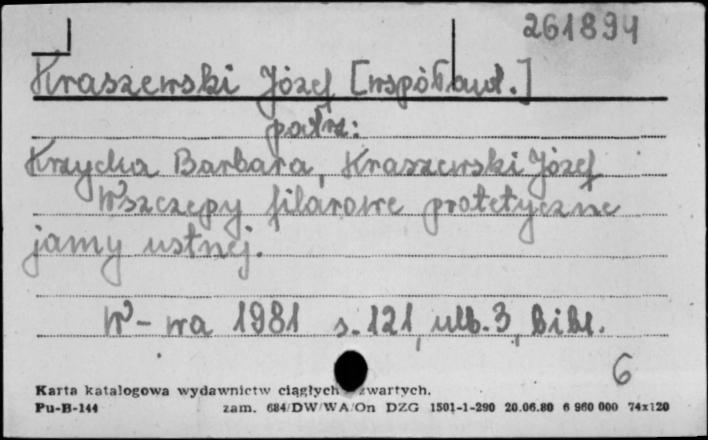 261894
Kraszewski Józef [współaut.]
patrz:
Krzycka Barbara, Kraszewski Józef
Wszczepy filarowe protetyczne
jamy ustnej.
W-wa 1981 s. 121, ulb. 3, bibl.
6
Karta katalogowa wydawnictw ciągłych zwartych.
Pu-B-144 zam. 684/DW/WA/On DZG 1501-1-290 20.06.80 6 960 000 74x120